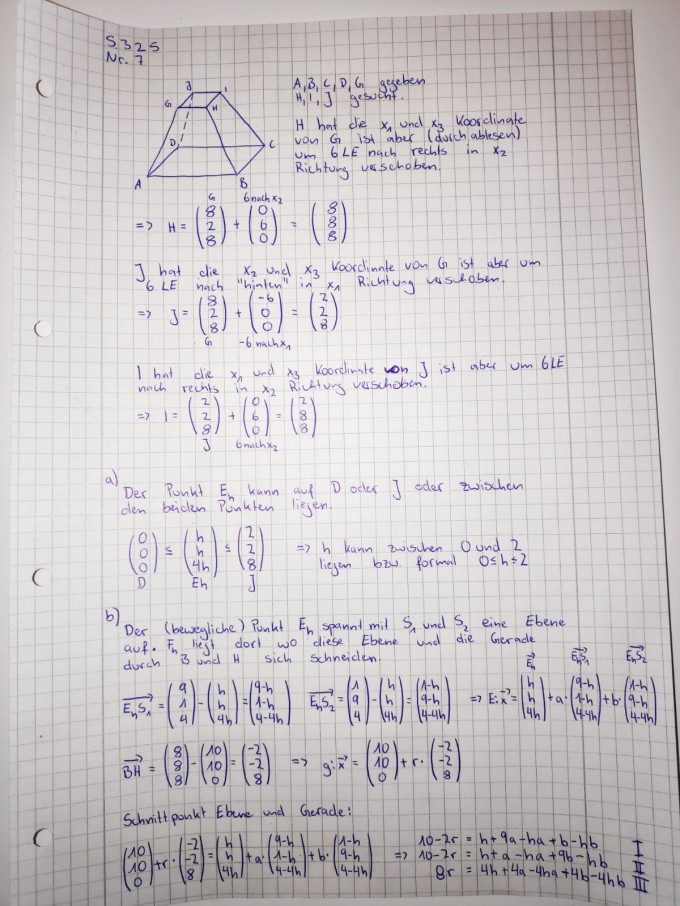 S.325
Nr. 7
A, B, C, D, G gegeben
H, I, J gesucht.
J I
G H
D C
A B
H hat die x₁ und x₃ Koordinate
von G ist aber (durch ablesen)
um 6 LE nach rechts in x₂
Richtung verschoben.
G 6 nach x₂
=> H = (8 2 8) + (0 6 0) = (8 8 8)
J hat die x₂ und x₃ Koordinate von G ist aber um
6 LE nach "hinten" in x₁ Richtung verschoben.
=> J = (8 2 8) + (-6 0 0) = (2 2 8)
G -6 nach x₁
I hat die x₁ und x₃ Koordinate von J ist aber um 6LE
nach rechts in x₂ Richtung verschoben.
=> I = (2 2 8) + (0 6 0) = (2 8 8)
J 6 nach x₂
a)
Der Punkt Eₕ kann auf D oder J oder zwischen
den beiden Punkten liegen.
(0 0 0) ≤ (h h 4h) ≤ (2 2 8) => h kann zwischen 0 und 2
liegen bzw. formal 0≤h≤2
D Eh J
b)
Der (bewegliche) Punkt Eₕ spannt mit S₁ und S₂ eine Ebene
auf. Fₕ liegt dort wo diese Ebene und die Gerade
durch B und H sich schneiden.
Eₕ EₕS₁ EₕS₂
EₕS₁ = (9 1 4) - (h h 4h) = (9-h 1-h 4-4h) EₕS₂ = (1 9 4) - (h h 4h) = (1-h 9-h 4-4h) => E: x = (h h 4h) + a· (9-h 1-h 4-4h) + b· (1-h 9-h 4-4h)
BH = (8 8 8) - (10 10 0) = (-2 -2 8) => g: x = (10 10 0) + r· (-2 -2 8)
Schnittpunkt Ebene und Gerade:
(10 10 0) + r· (-2 -2 8) = (h h 4h) + a· (9-h 1-h 4-4h) + b· (1-h 9-h 4-4h) => 10-2r = h+9a-ha+b-hb I
10-2r = h+a-ha+9b-hb II
8r = 4h+4a-4ha+4b-4hb III